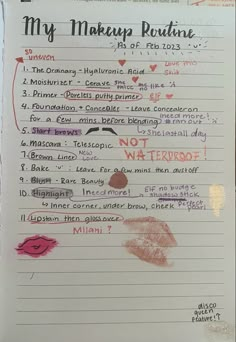 My Makeup Routine
As of Feb 2023 "v"
so uneven
1. The Ordinary - Hyaluronic Acid
Love this
2. Moisturizer - Cerave
3. Primer - Poreless putty primer Elf
4. Foundation + Concealer - Leave Concealer on
need more!
for a few mins before blending
5. Short brows
install day
6. Mascara: Telescopic NOT WATERPROOF!
7. Brown Liner NEW Love
8. Bake "v": Leave for a few mins then dust off
9. Blush - Rare Beauty
10. Highlight! need more! Elf no budge shadow stick
Inner corner, under brow, cheek Perfect
11. Upstain then gloss over
Milani?
disco queen feature!?